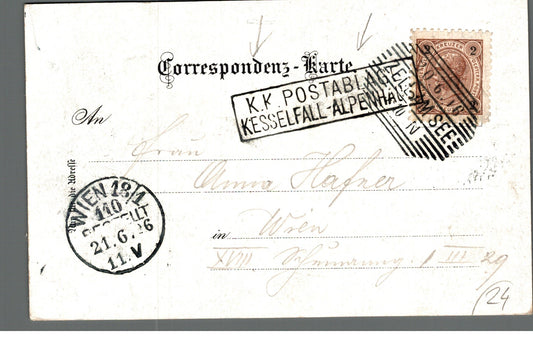 Correspondenz-Karte
2 KREUZER 2
K.K. POSTABLAGE
KESSELFALL-ALPENHAUS
ZELL AM SEE
An
Frau
Anna Hafner
in Wien
XVIII
Nur für die Adresse
WIEN 18/1
110
BESTELLT
21.6.96
11.V
III 29
24